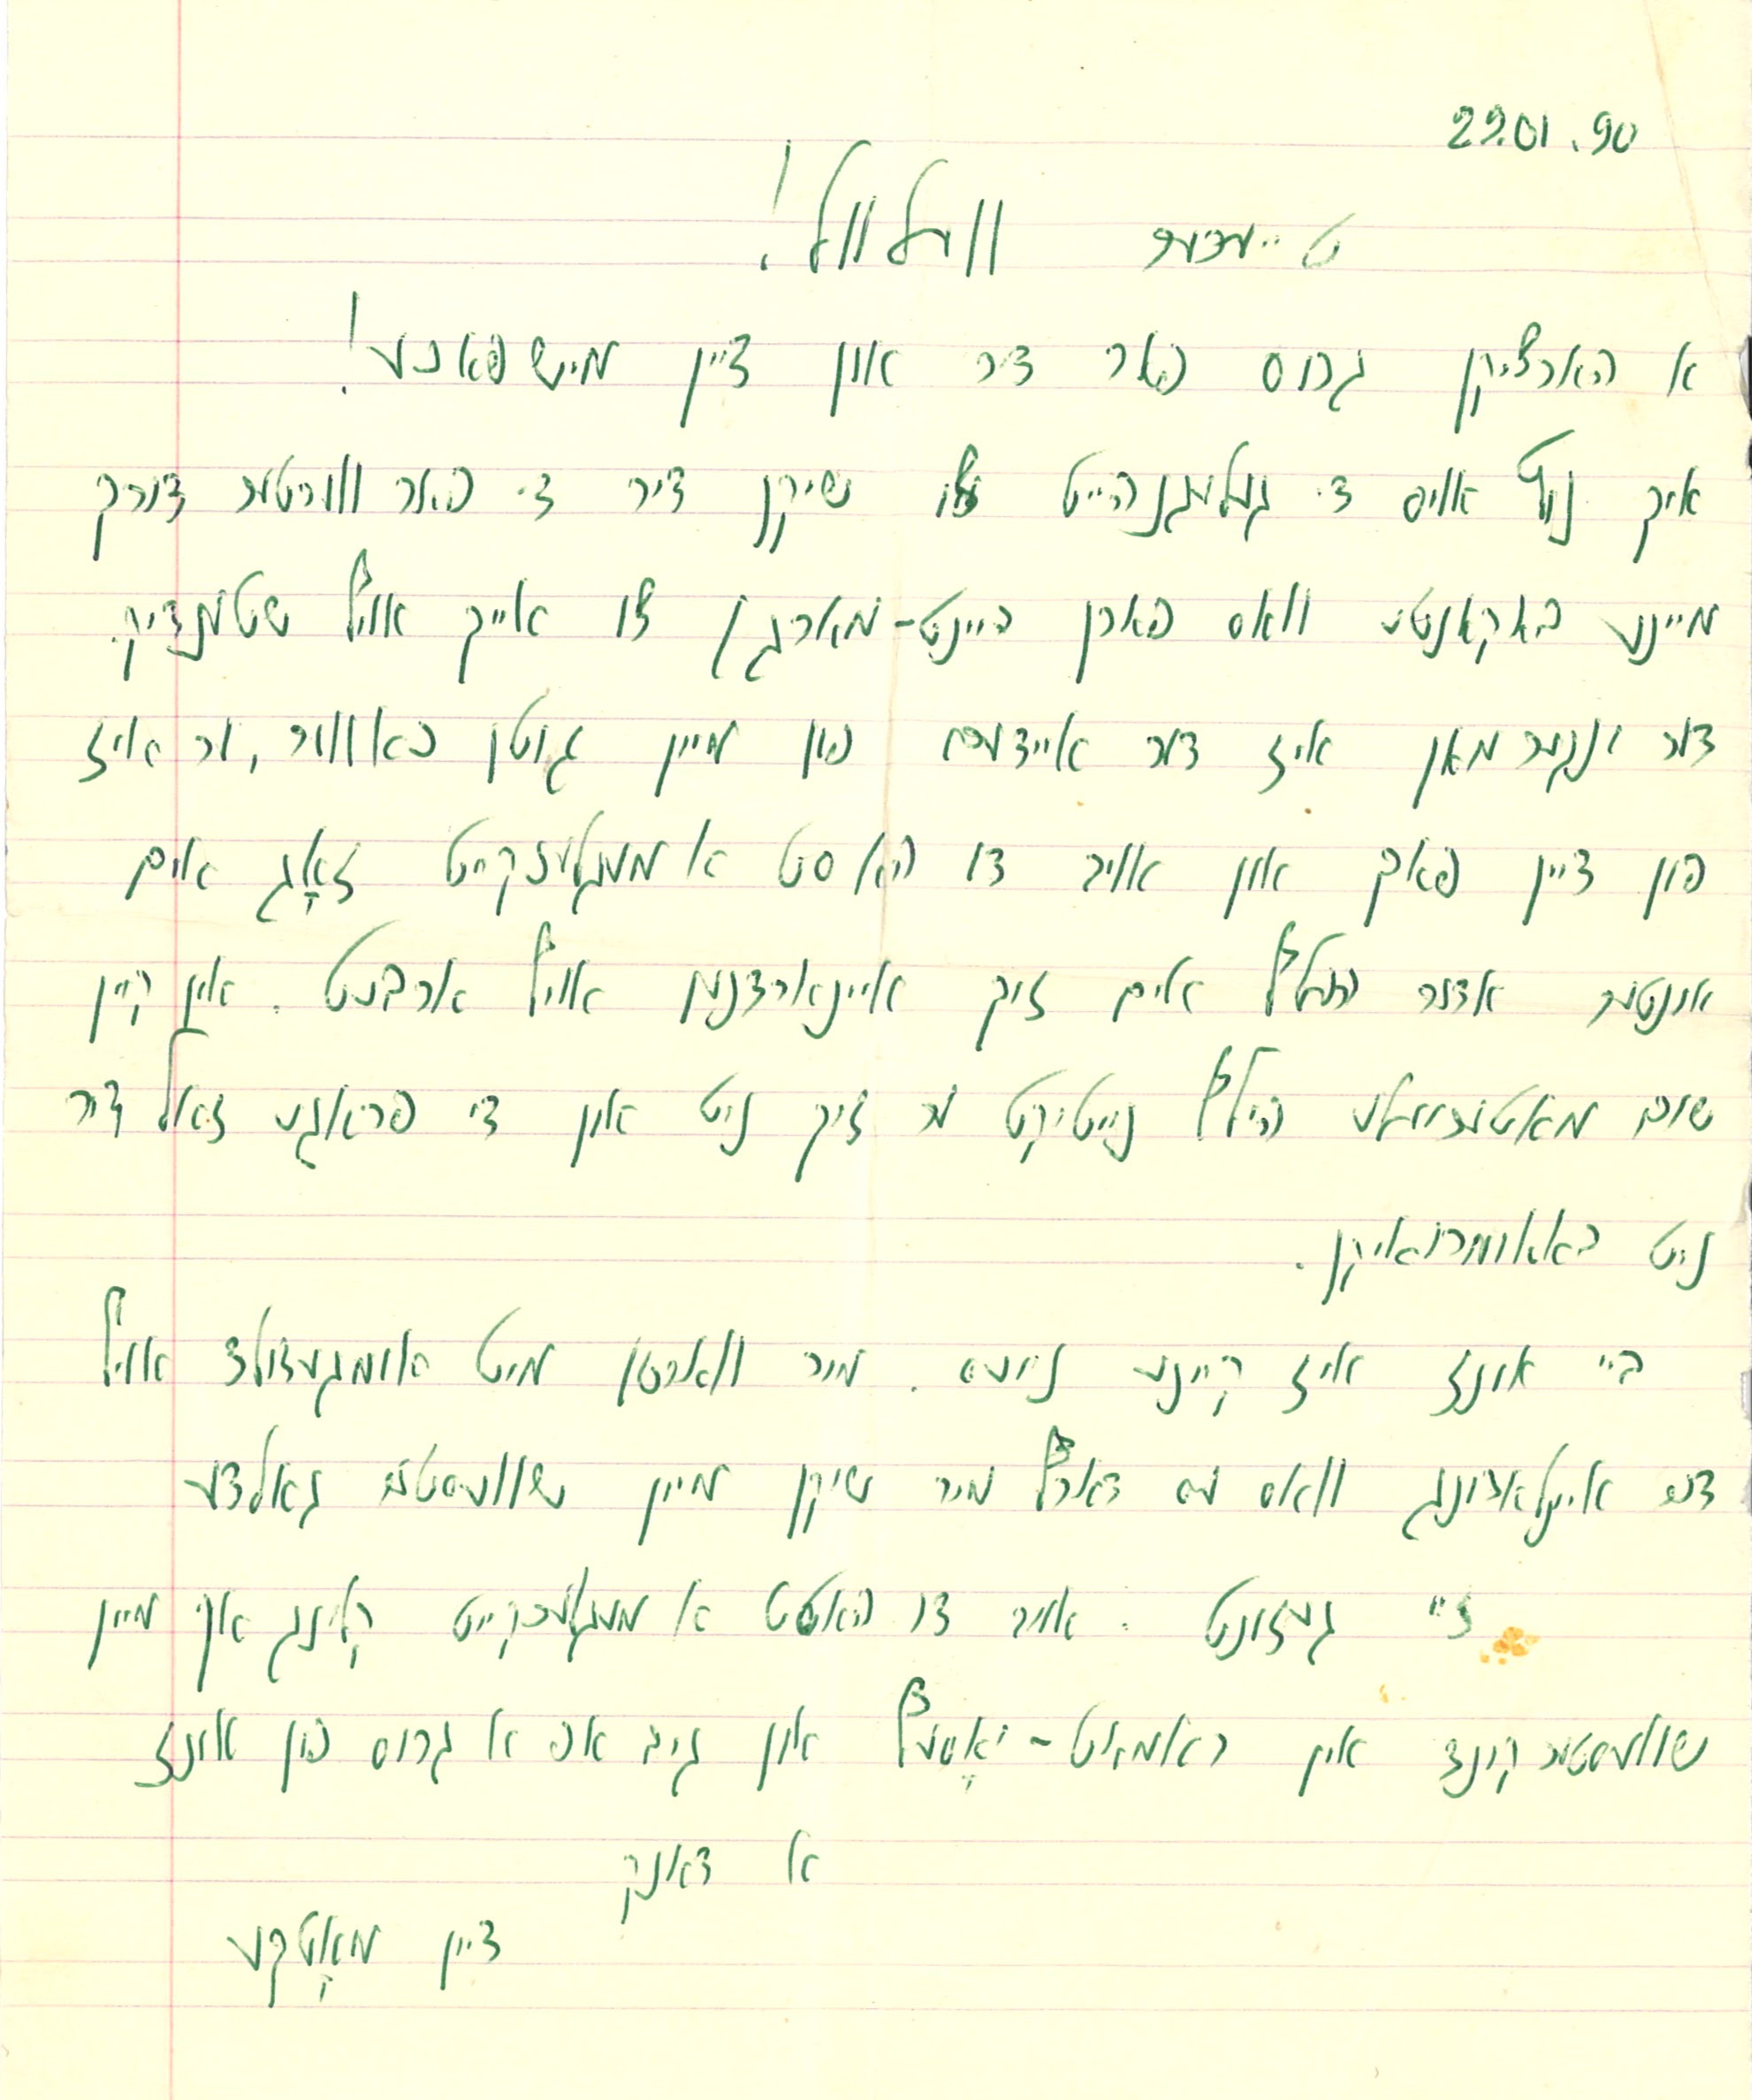 22.01.90
טייערער וועלוול!
א הארציקן גרוס פאר דיר און דיין מישפאכע!
איך נוץ אויס די געלעגנהייט צו שיקן דיר די פאר ווערטער דורך
מיינע באקאנטע וואס פארן היינט-מארגן צו אייך אויף שטענדיק.
דער יונגערמאן איז דער איידעם פון מיין גוטן כאווער, ער איז
פון דיין פאך און אויב דו האסט א מעגלעכקייט זאָג אים
אונטער אדער העלף אים זיך איינארדענען אויף ארבעט. אין קיין
שום מאטעריעלע הילף נייטיקט ער זיך ניט און די פראגע זאל דיר
ניט באאומרואיקן.
ביי אונז איז קיינע נייעס. מיר ווארטן מיט אומגעדולד אויף
דער איינלאדונג וואס עס דארף מיר שיקן מיין שוועסטער גאלדע
זיי געזונט. אויב דו האסט א מעגלעכקייט קלינג אן מיין
שוועסטערקינד אין ראמאט-יאָסעף און גיב אפ א גרוס פון אונז
א דאנק
דיין מאָטקע